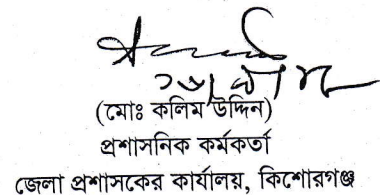 (মোঃ কলিম উদ্দিন)
প্রশাসনিক কর্মকর্তা
জেলা প্রশাসকের কার্যালয়, কিশোরগঞ্জ